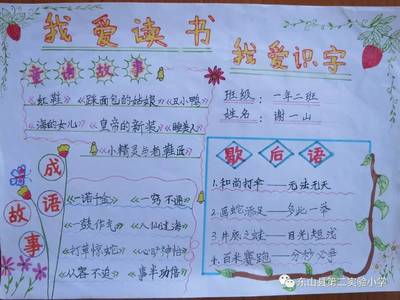 我爱读书
我爱识字
童话故事
《红鞋》《踩面包的姑娘》《丑小鸭》
《海的女儿》《皇帝的新装》《睡美人》
《小精灵与老鞋匠》
班级：一年二班
姓名：谢一山
成语故事
一诺千金 一窍不通
一鼓作气 八仙过海
打草惊蛇 心旷神怡
从容不迫 事半功倍
歇后语
1.和尚打伞——无法无天
2.画蛇添足——多此一举
3.井底之蛙——目光短浅
4.百米赛跑——分秒必争
东山县第二实验小学